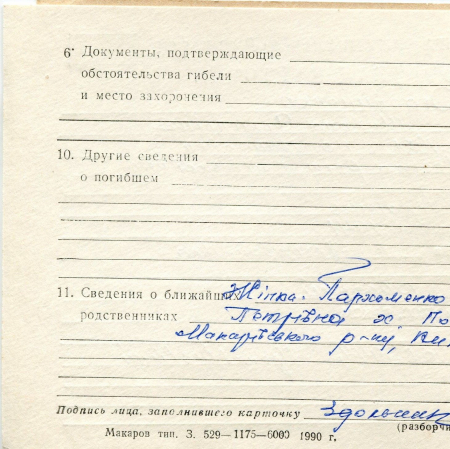 6. Документы, подтверждающие
обстоятельства гибели
и место захоронения
10. Другие сведения
о погибшем
11. Сведения о ближайших Жінка. Пархоменко
родственниках Петрівна х По
Макарівського р-ну, Ки.
Подпись лица, заполнившего карточку
(разборчи
Макаров тип. З. 529—1175—6000 1990 г.